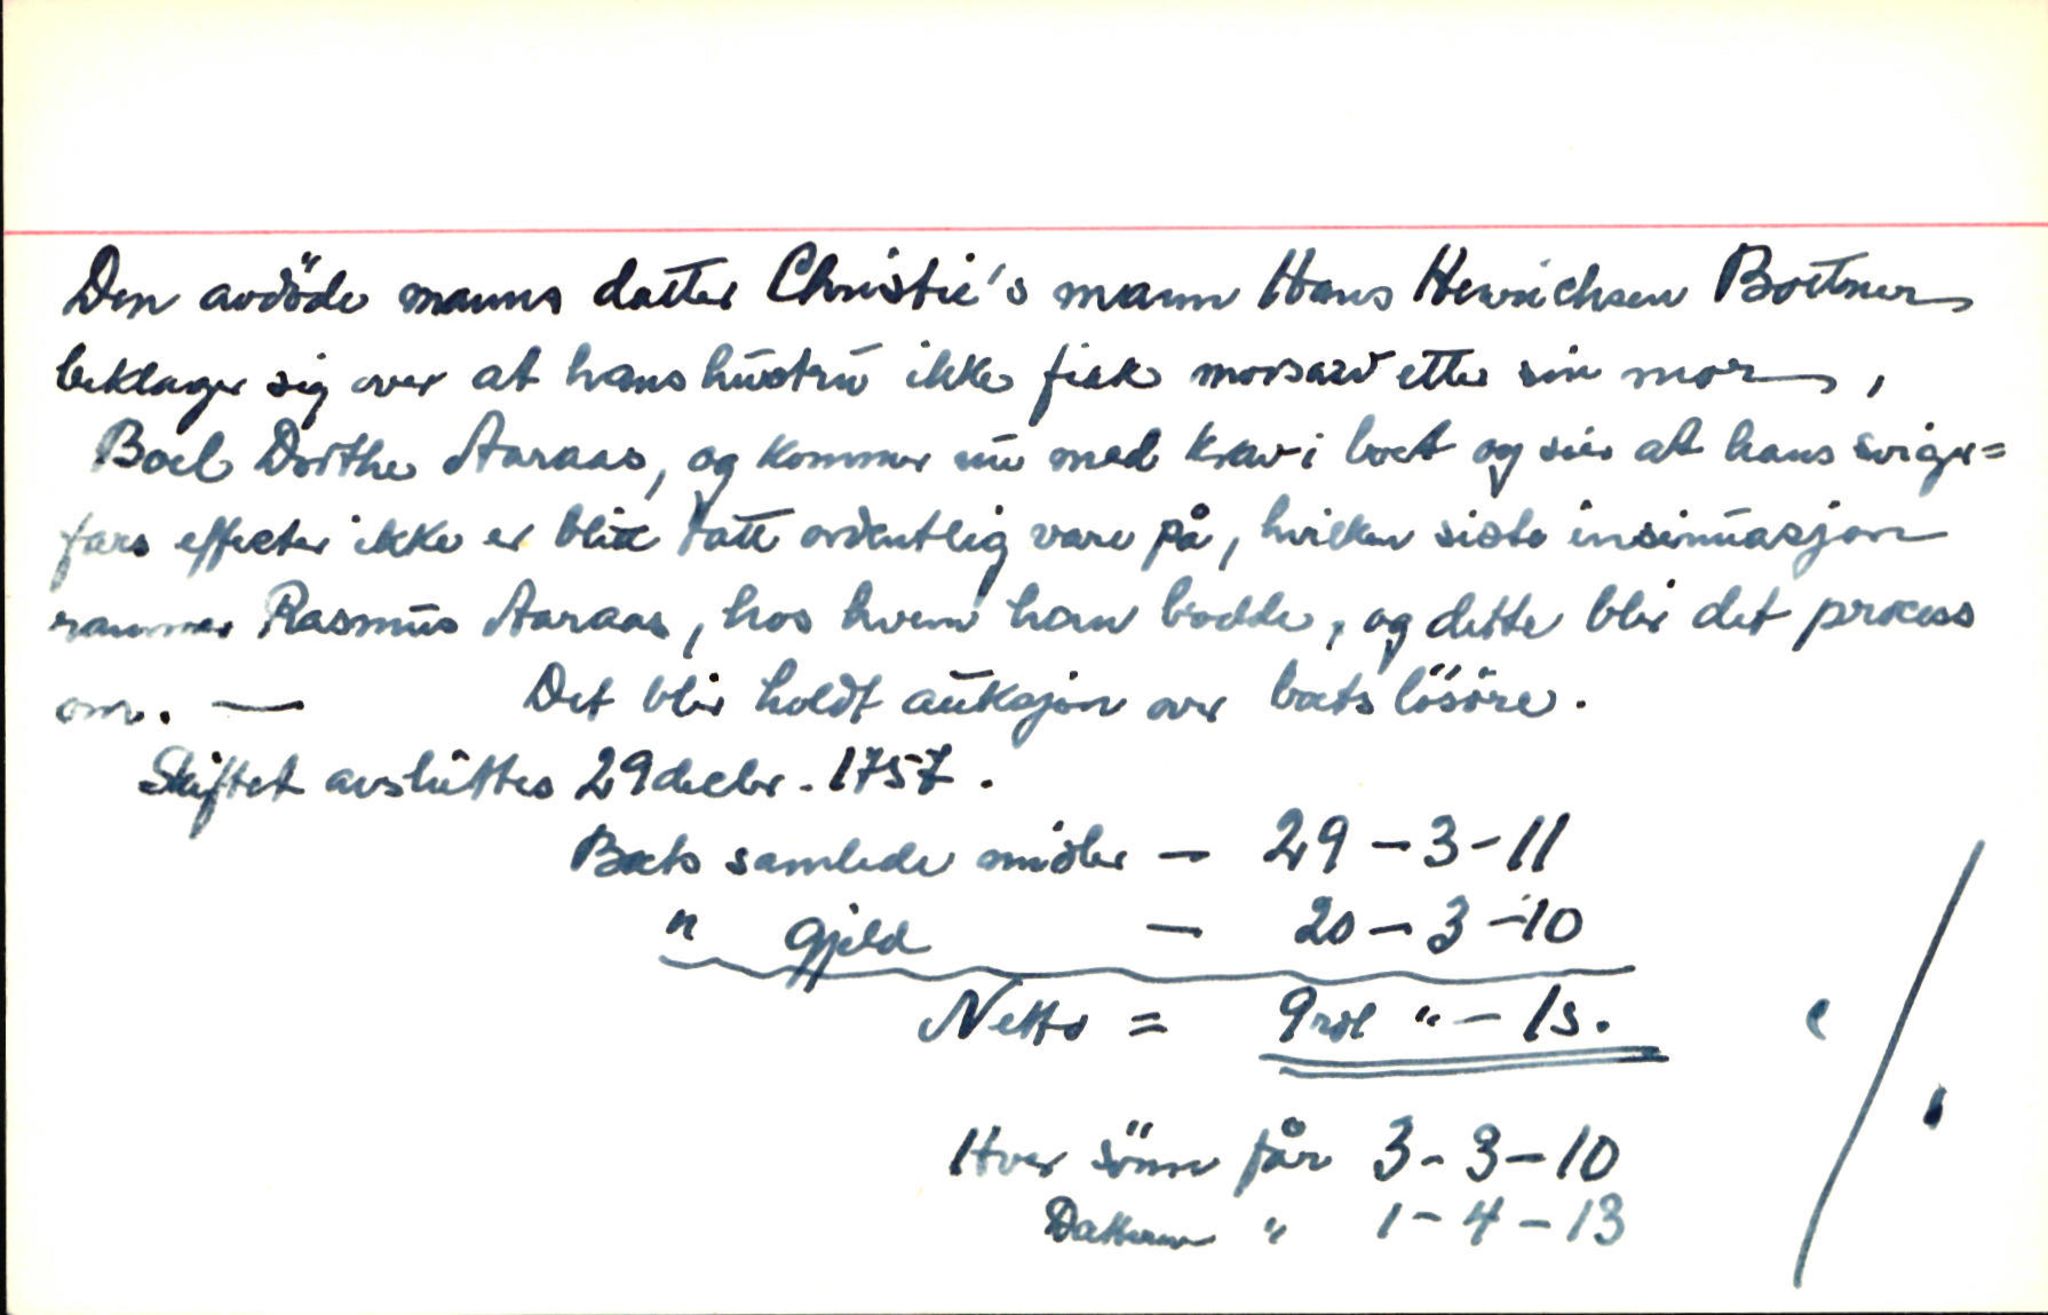 Den avdöde manns datter Christie's mann Hans Henrichsen Bottner
beklager sig over at hans hustru ikke fikk morsarv etter sin mor,
Boel Dorthe Aaraas, og kommer nu med krav i boet og sier at hans sviger=
fars effecter ikke er blitt tatt ordentlig vare på, hvilken siste insinuasjon
rammer Rasmus Aaraas, hos hvem han bodde, og dette blir det process
om. — Det blir holdt auksjon over boets lösöre.
Skiftet avsluttes 29 decbr. 1757.
Boets samlede midler — 29 – 3 – 11
" gjeld — 20 – 3 – 10
Netto = 9 rdl " – 1 s.
Hver sönn får 3 - 3 – 10
Datteren " 1 – 4 – 13